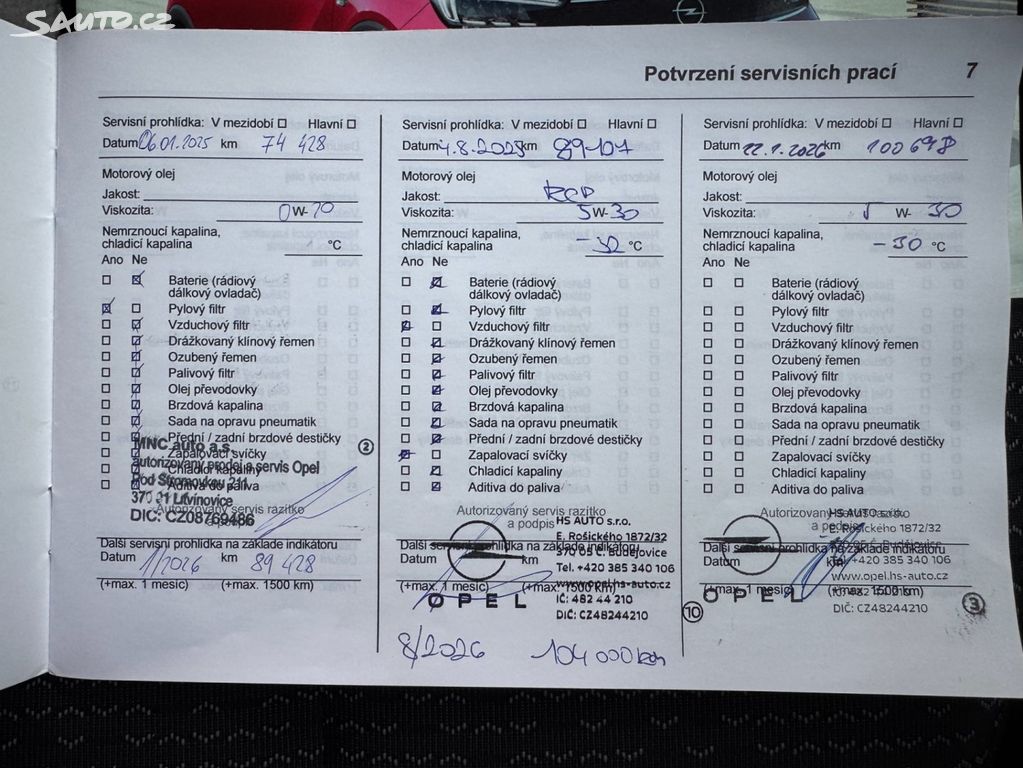 SAUTO.CZ
Potvrzení servisních prací 7
Servisní prohlídka: V mezidobí ☐ Hlavní ☐
Datum 06.01.2025 km 74 428
Motorový olej
Jakost:
Viskozita: 0W-20
Nemrznoucí kapalina,
chladicí kapalina °C
Ano Ne
☐ ☒ Baterie (rádiový
dálkový ovladač)
☒ ☐ Pylový filtr
☐ ☒ Vzduchový filtr
☐ ☒ Drážkovaný klínový řemen
☐ ☒ Ozubený řemen
☐ ☒ Palivový filtr
☐ ☒ Olej převodovky
☐ ☒ Brzdová kapalina
☐ ☒ Sada na opravu pneumatik
☐ ☒ Přední / zadní brzdové destičky
☐ ☒ Zapalovací svíčky
☐ ☒ Chladicí kapaliny
☐ ☒ Aditiva do paliva
Autorizovaný servis razítko
a podpis
MNC auto a.s.
autorizovaný prodej a servis Opel
Pod Stromovkou 211
370 21 Litvínovice
DIČ: CZ08769486
2
Další servisní prohlídka na základě indikátoru
Datum 1/2026 km 89 428
(+max. 1 měsíc) (+max. 1500 km)
Servisní prohlídka: V mezidobí ☐ Hlavní ☐
Datum 4.8.2025 km 89101
Motorový olej
Jakost:
Viskozita: 5W-30
Nemrznoucí kapalina,
chladicí kapalina -32 °C
Ano Ne
☐ ☒ Baterie (rádiový
dálkový ovladač)
☐ ☒ Pylový filtr
☒ ☐ Vzduchový filtr
☐ ☒ Drážkovaný klínový řemen
☐ ☒ Ozubený řemen
☐ ☒ Palivový filtr
☐ ☒ Olej převodovky
☐ ☒ Brzdová kapalina
☐ ☒ Sada na opravu pneumatik
☐ ☒ Přední / zadní brzdové destičky
☒ ☐ Zapalovací svíčky
☐ ☒ Chladicí kapaliny
☐ ☒ Aditiva do paliva
Autorizovaný servis razítko
a podpis
HS AUTO s.r.o.
E. Rošického 1872/32
370 05 Č. Budějovice
Tel. +420 385 340 106
www.opel.hs-auto.cz
IČ: 482 44 210
DIČ: CZ48244210
OPEL
10
Další servisní prohlídka na základě indikátoru
Datum km
(+max. 1 měsíc) (+max. 1500 km)
8/2026 104 000 km
Servisní prohlídka: V mezidobí ☐ Hlavní ☐
Datum 22.1.2026 km 100698
Motorový olej
Jakost:
Viskozita: 5 W- 30
Nemrznoucí kapalina,
chladicí kapalina -30 °C
Ano Ne
☐ ☐ Baterie (rádiový
dálkový ovladač)
☐ ☐ Pylový filtr
☐ ☐ Vzduchový filtr
☐ ☐ Drážkovaný klínový řemen
☐ ☐ Ozubený řemen
☐ ☐ Palivový filtr
☐ ☐ Olej převodovky
☐ ☐ Brzdová kapalina
☐ ☐ Sada na opravu pneumatik
☐ ☐ Přední / zadní brzdové destičky
☐ ☐ Zapalovací svíčky
☐ ☐ Chladicí kapaliny
☐ ☐ Aditiva do paliva
Autorizovaný servis razítko
a podpis
HS AUTO s.r.o.
E. Rošického 1872/32
370 05 Č. Budějovice
Tel. +420 385 340 106
www.opel.hs-auto.cz
IČ: 482 44 210
DIČ: CZ48244210
OPEL
3
Další servisní prohlídka na základě indikátoru
Datum km
(+max. 1 měsíc) (+max. 1500 km)